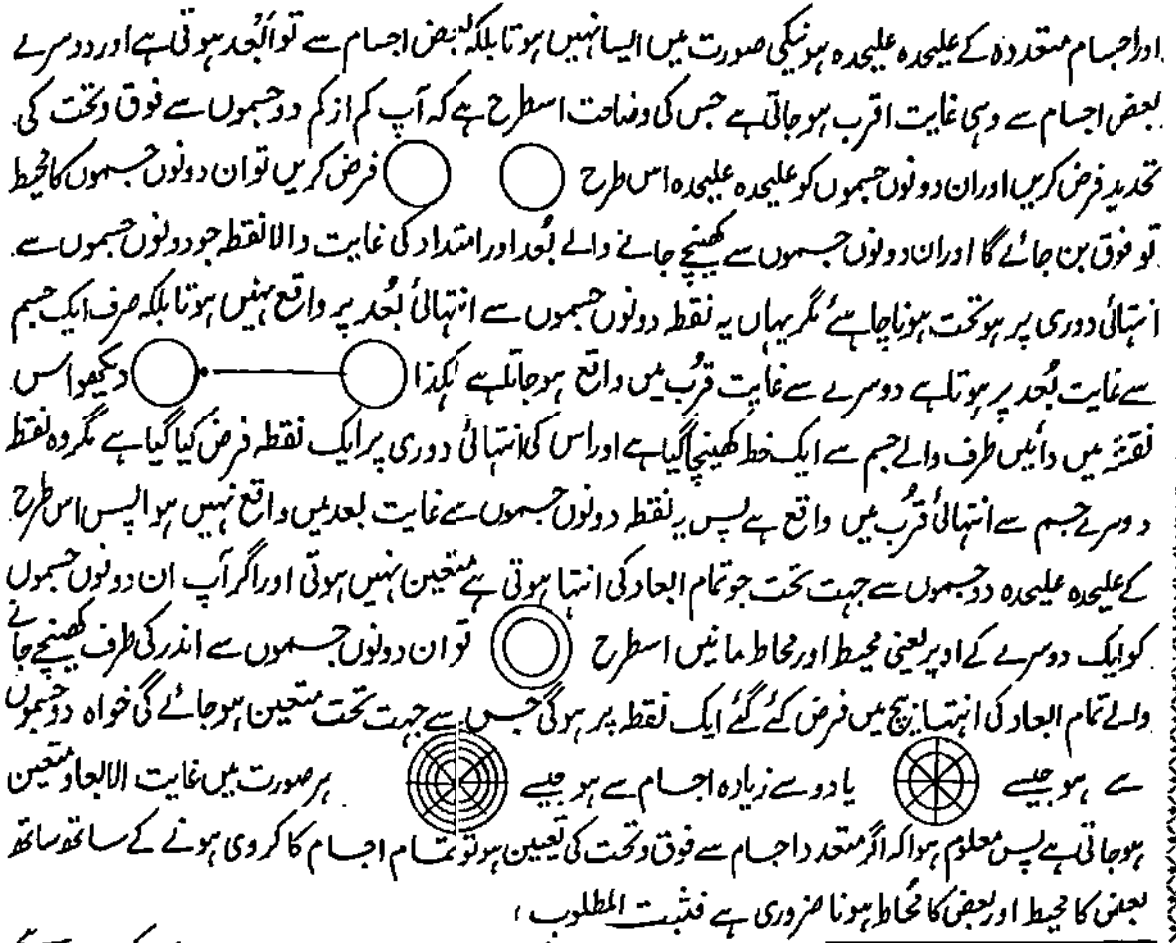 اور اجسام متعددہ کے علیحدہ علیحدہ ہونیکی صورت میں ایسا نہیں ہوتا بلکہ بعض اجسام سے تو ابعد ہوتی ہے اور دوسرے
بعض اجسام سے وہی غایت اقرب ہو جاتی ہے جس کی وضاحت اسطرح ہے کہ آپ کم از کم دو جسموں سے فوق و تحت کی
تحدید فرض کریں اور ان دونوں جسموں کو علیحدہ علیحدہ اس طرح فرض کریں تو ان دونوں جسموں کا محیط
تو فوق بن جائے گا اور ان دونوں جسموں سے کھینچے جانے والے بُعد اور امتداد کی غایت والا نقطہ جو دونوں جسموں سے
انتہائی دوری پر ہو تحت ہونا چاہئے مگر یہاں یہ نقطہ دونوں جسموں سے انتہائی بُعد پر واقع نہیں ہوتا بلکہ صرف ایک جسم
سے غایت بُعد پر ہوتا ہے دوسرے سے غایت قرُب میں واقع ہو جاتا ہے ہٰکذا دیکھو اس
نقشہ میں دائیں طرف والے جسم سے ایک خط کھینچا گیا ہے اور اس کی انتہائی دوری پر ایک نقطہ فرض کیا گیا ہے مگر وہ نقطہ
دوسرے جسم سے انتہائی قرُب میں واقع ہے پس یہ نقطہ دونوں جسموں سے غایت بعد میں واقع نہیں ہوا پس اس طرح
کے علیحدہ علیحدہ دو جسموں سے جہت تحت جو تمام ابعاد کی انتہا ہوتی ہے متعین نہیں ہوتی اور اگر آپ ان دونوں جسموں
کو ایک دوسرے کے اوپر یعنی محیط اور محاط مانیں اسطرح تو ان دونوں جسموں سے اندر کی طرف کھینچے جانے
والے تمام ابعاد کی انتہا بیچ میں فرض کئے گئے ایک نقطہ پر ہوگی جس سے جہت تحت متعین ہو جائے گی خواہ دو جسموں
سے ہو جیسے یا دو سے زیادہ اجسام سے ہو جیسے ہر صورت میں غایت الابعاد متعین
ہو جاتی ہے پس معلوم ہوا کہ اگر متعدد اجسام سے فوق و تحت کی تعیین ہو تو تمام اجسام کا کروی ہونے کے ساتھ ساتھ
بعض کا محیط اور بعض کا محُاط ہونا ضروری ہے فثبت المطلوب ؛